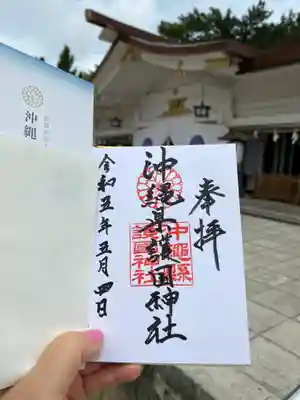 奉拝
沖縄県護国神社
沖縄縣
護國神社
令和五年五月四日
沖縄